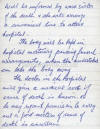 must be informed by some sister
of the death & she will arrange
a convenient time to attend
hospital.
The body must be left in
hospital mortuary pending funeral
arrangements, when the undertaker
can take the body away.
The doctor in the hospital
will give a medical cert. if
cause of death is known or
he may request permission to carry
out a post mortem if cause of
death is uncertain.